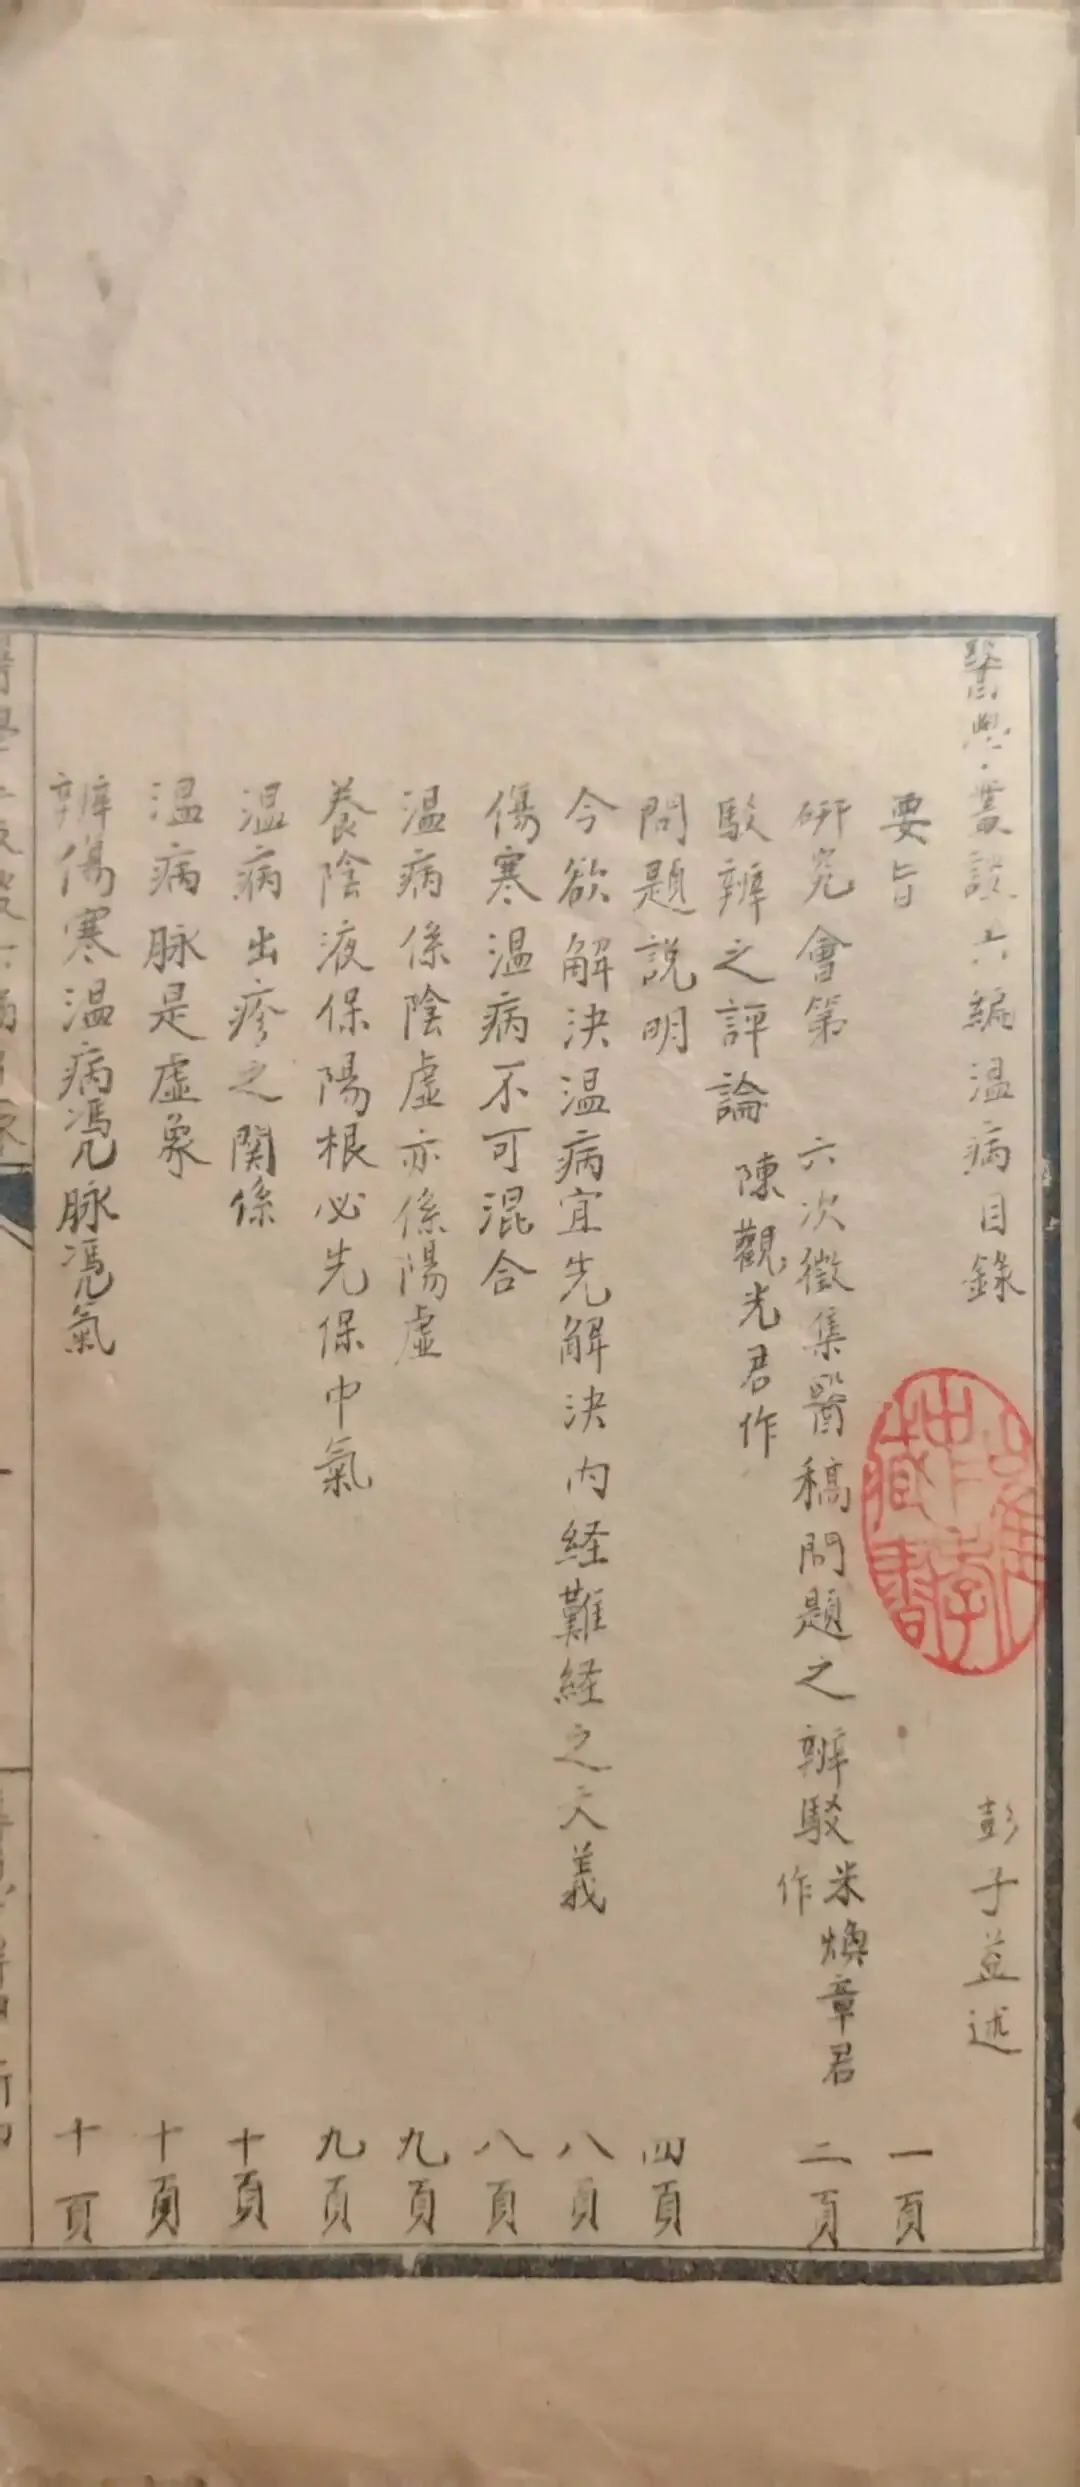 醫學
六編溫病目錄 彭子益述
要旨 一頁
研究會第 六次徵集醫稿問題之辨駁 米煥章君作 二頁
駁辨之評論 陳觀光君作
問題說明 四頁
今欲解決溫病宜先解決內経難経之大義 八頁
傷寒溫病不可混合 八頁
溫病係陰虛亦係陽虛 九頁
養陰液保陽根必先保中氣 九頁
溫病出疹之関係 十頁
溫病脉是虛象 十頁
辨傷寒溫病憑脉憑氣 十頁
藏書